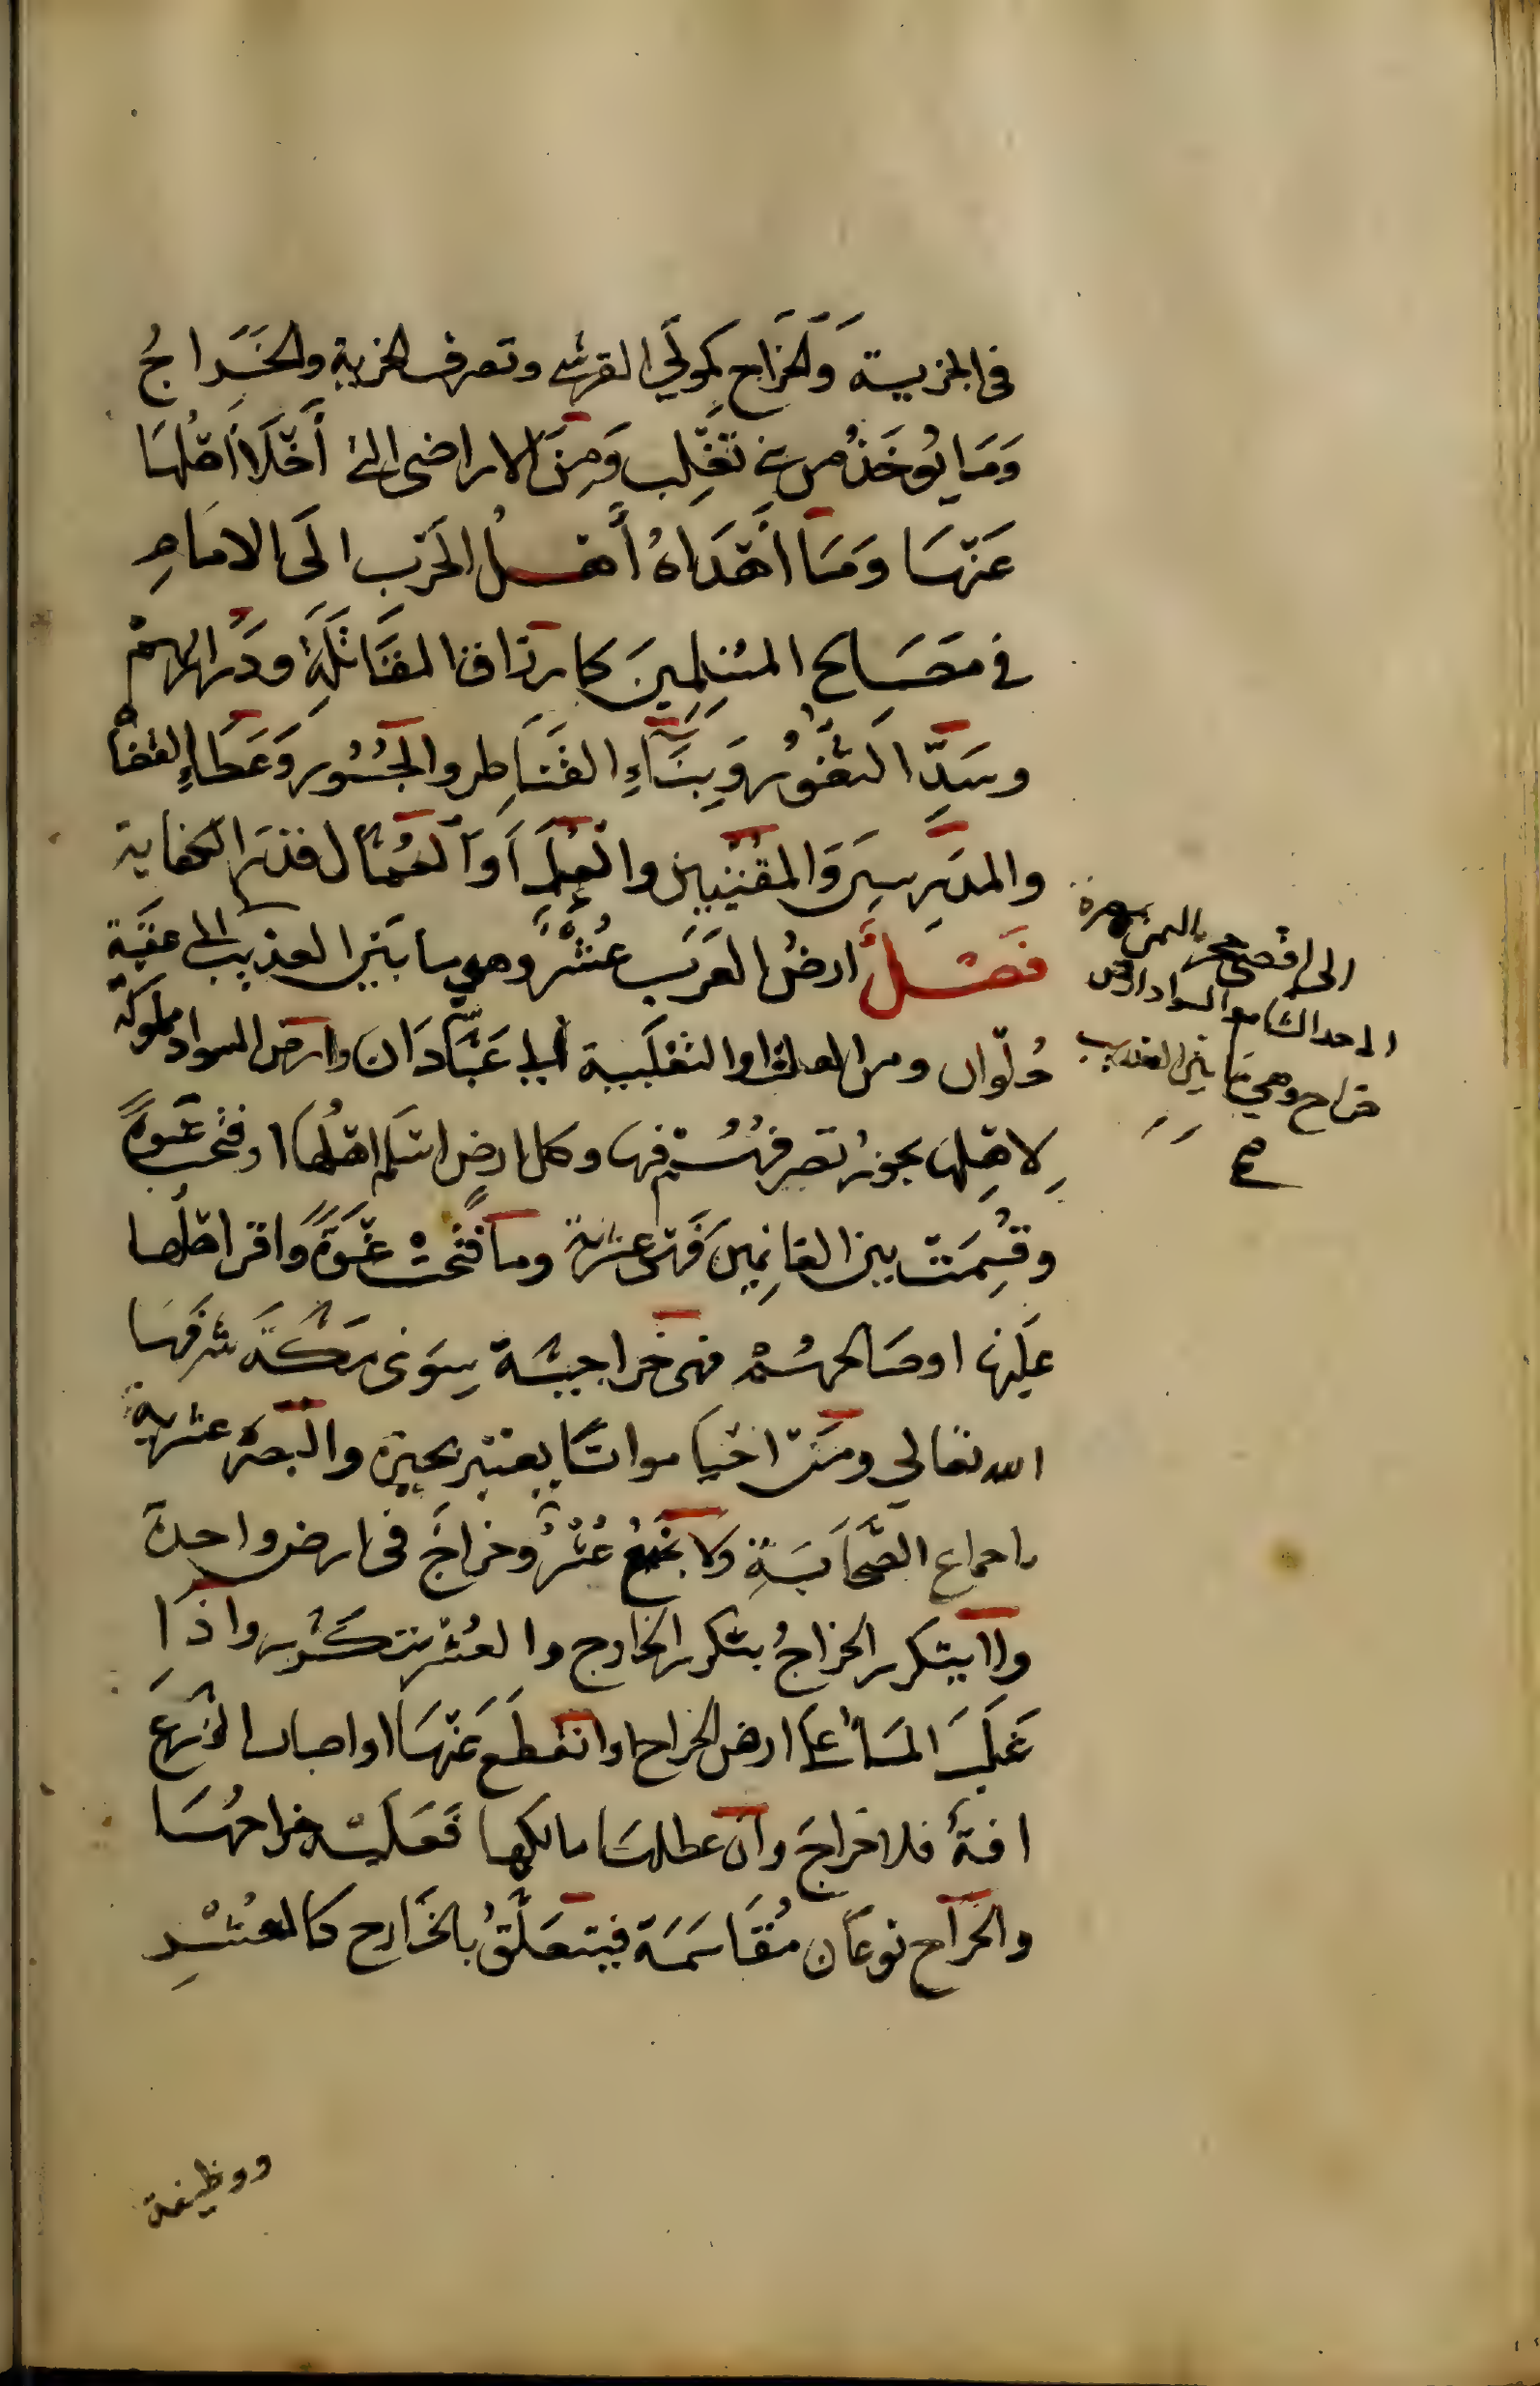 في الجزية والخراج كمولى القرشي وتصرف الجزية والخراج
وما يؤخذ من بني تغلب ومن الاراضي التي أجلا أهلها
عنها وما أهداه أهل الحرب الى الامام
في مصالح المسلمين كارزاق المقاتلة ودراريهم
وسد الثغور وبناء القناطر والجسور وعطاء القضاة
والمدرسين والمفتيين والعلماء والعمال قدر الكفاية
فصل ارض العرب عشر وهي ما بين العذيب الى عقبة
حلوان ومن العلث او الثعلبية الى عبادان وارض السواد مملوكة
لاهلها يجوز تصرفهم فيها وكل ارض اسلم اهلها او فتحت عنوة
وقسمت بين الغانمين فهي عشرية وما فتحت عنوة واقر اهلها
عليها او صالحهم فهي خراجية سوى مكة شرفها
الله تعالى ومن احيا مواتا يعتبر بحيزه والبصرة عشرية
باجماع الصحابة ولا يجتمع عشر وخراج في ارض واحدة
ولا يتكرر الخراج بتكرر الخارج والعشر يتكرر واذا
غلب الماء على ارض الخراج او انقطع عنها او اصاب الزرع
افة فلا خراج وان عطلها مالكها فعليه خراجها
والخراج نوعان مقاسمة فيتعلق بالخارج كالعشر
الى اقصى حجر باليمن بمهرة
الى حد الشام والسواد ارض
خراج وهي ما بين العذيب
صح
ووظيفة